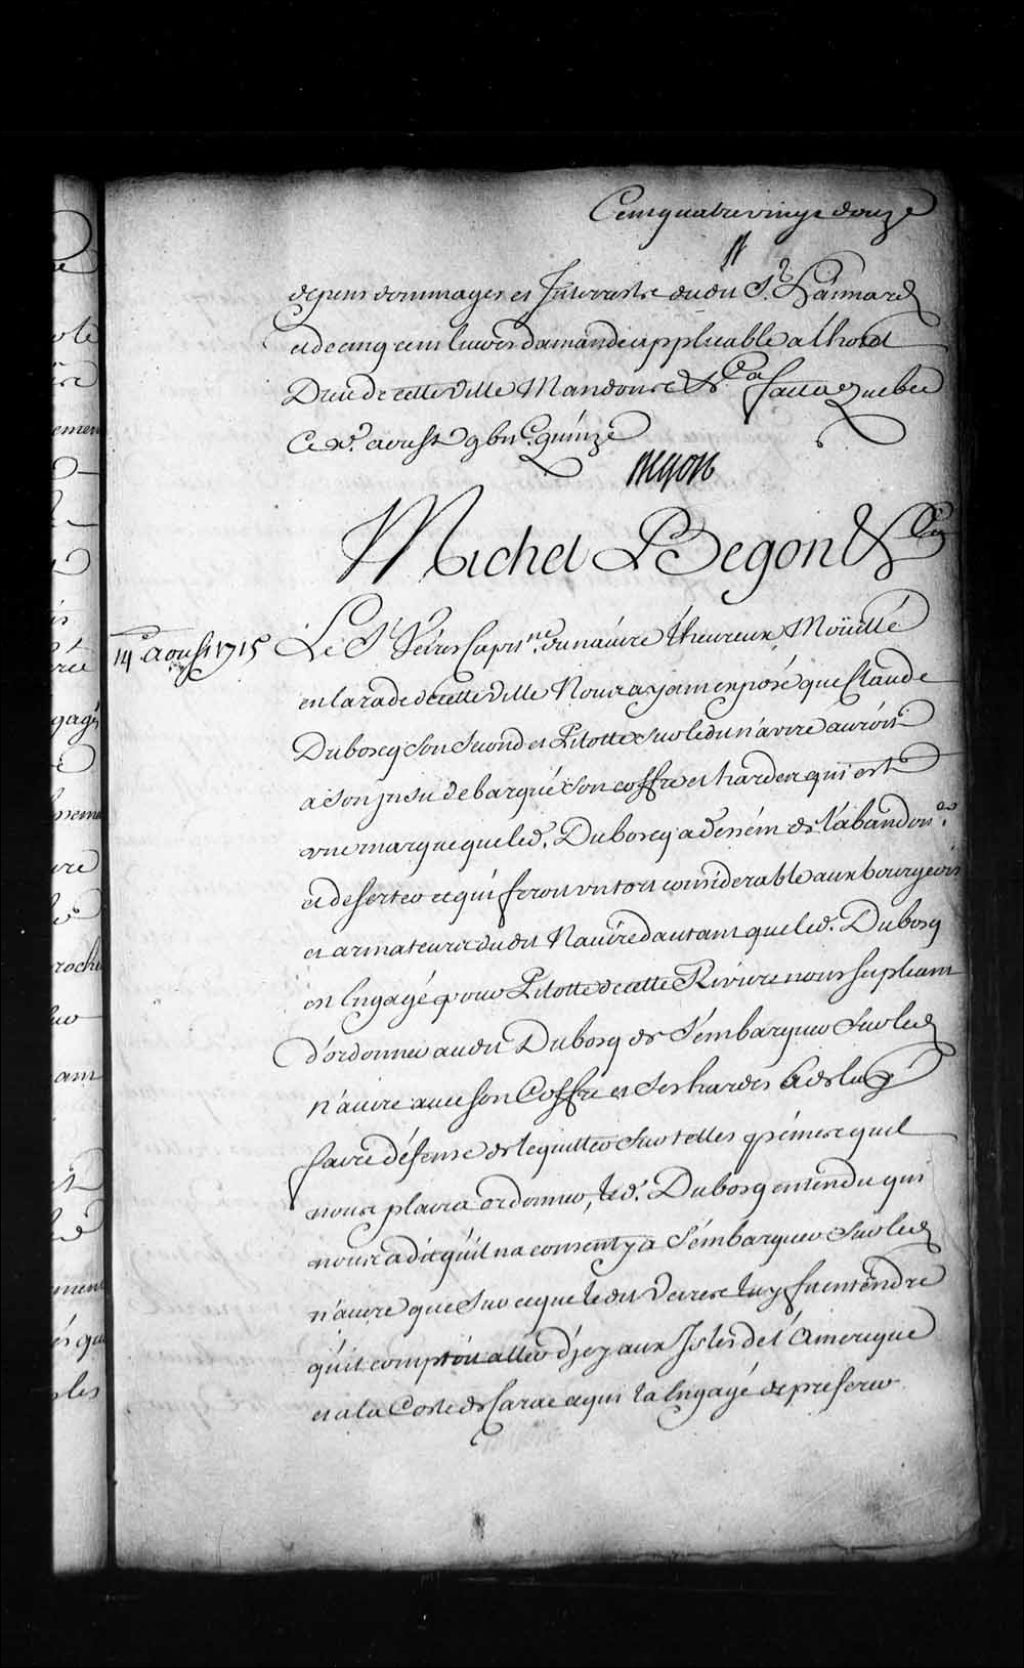 Cent quatre vingt douze
depens dommages et Interrests dudit Sr. Hainard
et de cinq cent livres damande applicable a lhotel
Dieu de cette ville Mandons &ca fait a quebec
Ce xe. aoust 9bii C. quinze
Begon
Michel Begon &ca
14e. aoust 1715
Le Sr. Veirés Capitne. du navire l'heureux Moüillé
en la rade de cette ville Nous ayant exposé que Claude
Duboscq son second et Pilotte sur ledit navire auroit
a son insu debarqué son coffre et hardes qui est
une marque que led. Duboscq a dessein de l'abandoner.
et deserter ce qui feroit un tort considerable aux bourgeois
et armateurs dudit Navire dautant que led. Dubosq
est Engagé pour Pilotte de cette Riviere nous supliant
d'ordonner audit Dubosq de s'embarquer sur led
navire avec son Coffre et ses hardes & de luy
faire défense de le quitter sur telles peines quil
nous plaira ordonner, led. Dubosq entendu qui
nous a dit qu'il na consenty a s'embarquer sur led
navire que sur ce que ledit Veires luy fit entendre
qu'il comptoit aller d'jcy aux Isles de l'Amerique
et a la Coste de Carac ce qui la Engagé de preferer